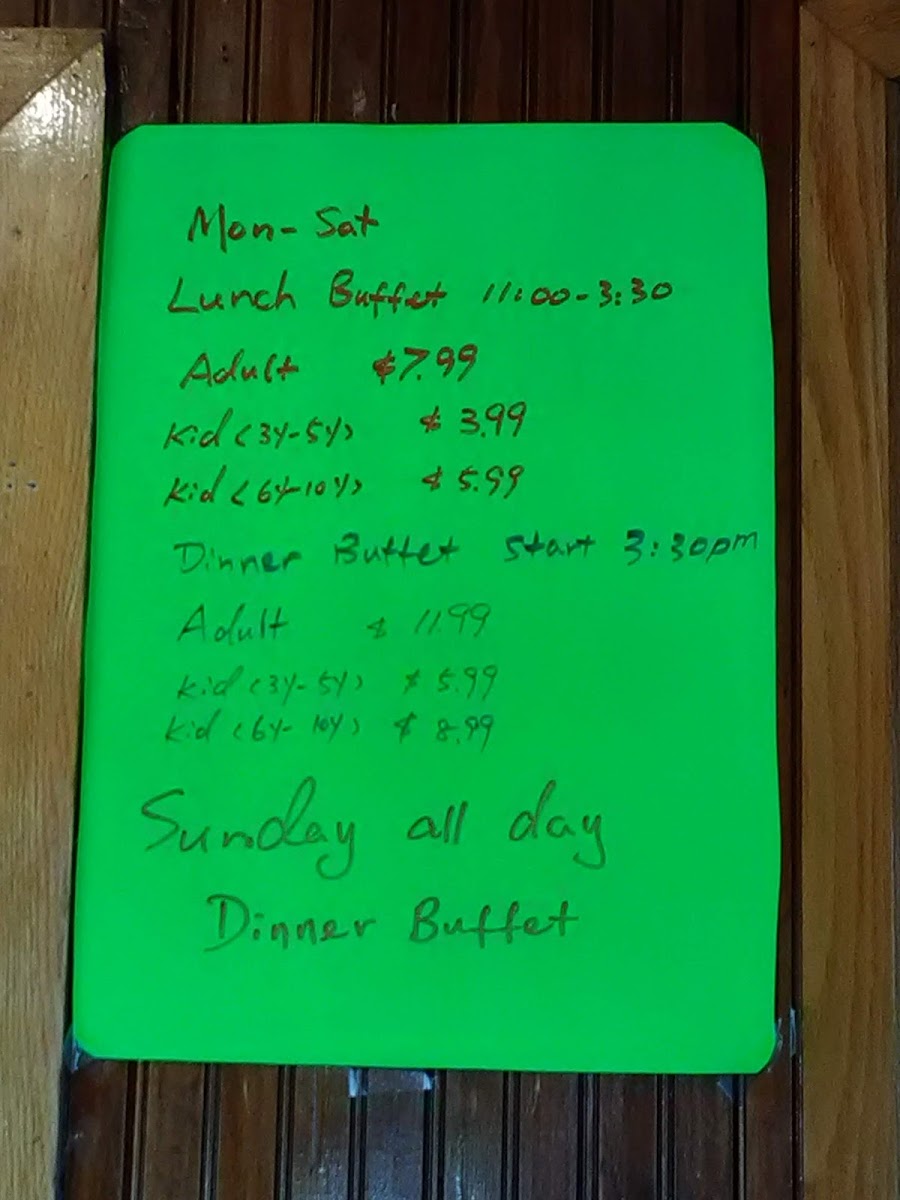 Mon- Sat
Lunch Buffet 11:00-3:30
Adult $7.99
Kid (3Y-5Y) $3.99
Kid (6Y-10Y) $5.99
Dinner Buffet Start 3:30pm
Adult $11.99
Kid (3Y-5Y) $5.99
Kid (6Y-10Y) $8.99
Sunday all day
Dinner Buffet